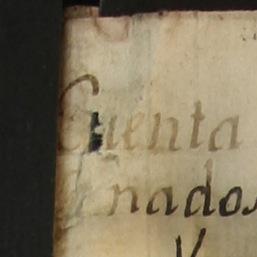 Cuenta
nados
Y